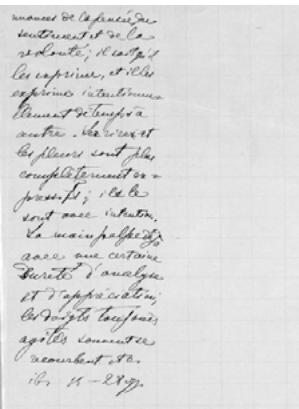 nuances de la pensée, du
sentiment et de la
volonté; il sait qu'il
les exprime, et il les
exprime intentionnel-
lement de temps à
autre. Les rires et
les pleurs sont plus
complètement ex-
pressifs; ils le
sont avec intention.
La main palpe déjà
avec une certaine
sureté d'analyse
et d'appréciation;
les doigts toujours
agités
se
recourbent etc.
ib.